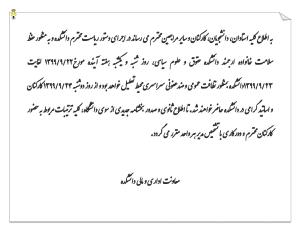 به اطلاع کلیه استادان، دانشجویان، کارکنان و سایر مراجعین محترم می رساند در اجرای دستور ریاست محترم دانشکده و به منظور حفظ
سلامت خانواده ارجمند دانشکده حقوق و علوم سیاسی، روز شنبه و یکشنبه هفته آینده مورخ ۱۳۹۹/۹/۲۲ لغایت
۱۳۹۹/۹/۲۳ دانشکده بمنظور نظافت عمومی و ضدعفونی سراسری محیط تعطیل خواهد بود و از روز دوشنبه ۱۳۹۹/۹/۲۴ کارکنان
و اساتید گرامی در دانشکده حاضر خواهند شد. تا اطلاع ثانوی و صدور بخشنامه جدیدی از سوی دانشگاه، کلیه ترتیبات مربوط به حضور
کارکنان محترم و دورکاری با تشخیص مدیر هر واحد مقرر می گردد.
معاونت اداری و مالی دانشکده